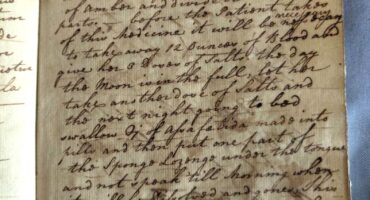 of amber and divide
parts. before the Patient takes
of this medicine it will be necessary
to take away 12 Ounces of Blood and
give her a Dose of Salts the day
the Moon is in the full. Let her
take another dose of Salts and
the next night going to bed
swallow of asafetida made into
pills and then put one part of
the Sponge Lozenge under the tongue
and not speak till morning when
it will dissolved and gone. This